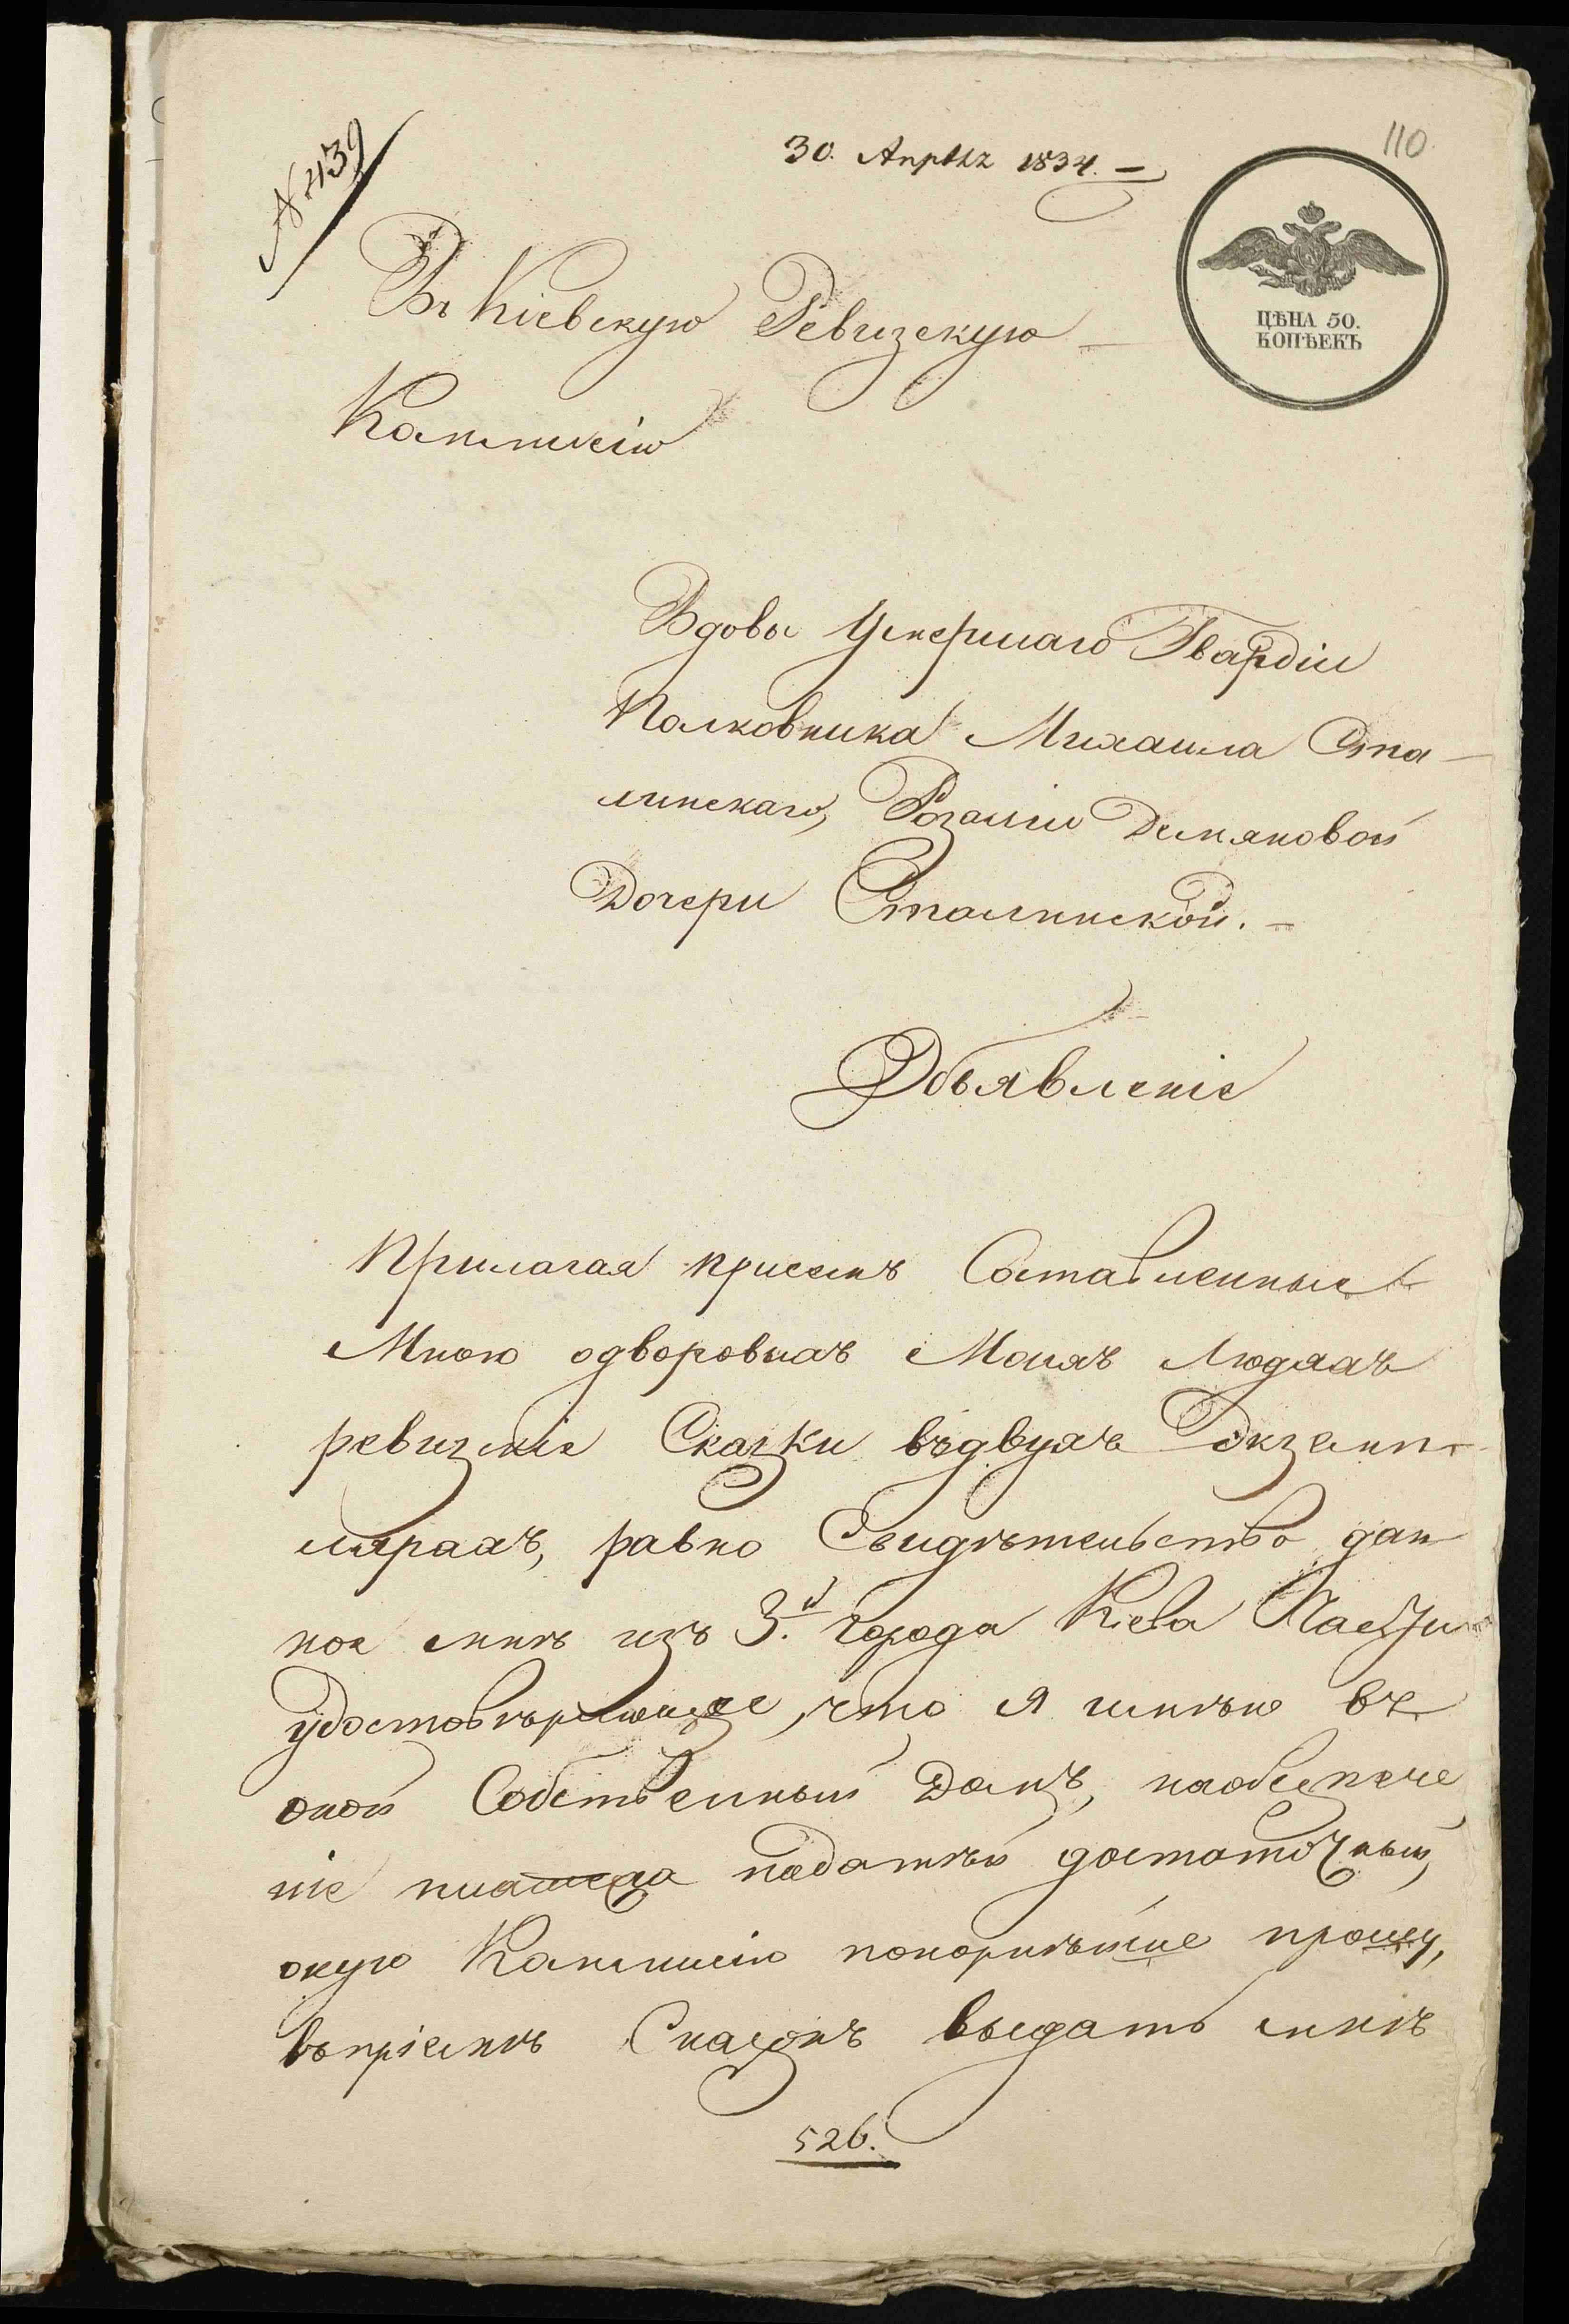 110.
№ 439
30. Апрѣля 1834. —
ЦѢНА 50.
КОПѢЕКЪ
Въ Кіевскую Ревизскую
Коммисію
Вдовы Умершаго Гвардіи
Полковника Михаила Ста-
линскаго, Розаліи Демяновой
Дочери Сталинской. —
Объявленіе
Прилагая присемъ Составленные
Мною одворовыхъ Моихъ Людяхъ
ревизскіе Сказки въдвухъ Экземп-
лярахъ, равно Свидѣтельство дан
ное мнѣ изъ 3.й города Кіева Части
удостовѣряющее, что я имѣю въ
оной Собственный Домъ, наобезпече
ніе платежа податѣй достаточный,
оную Коммисію покорнѣйше прошу,
въпріемѣ Сказокъ выдать мнѣ
526.